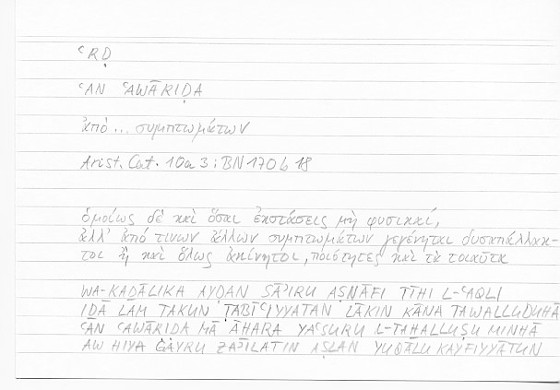 ʿRḌ
ʿAN ʿAWĀRIḌA
ἀπό... συμπτωμάτων
Arist. Cat. 10a 3; BN 170b 18
ὁμοίως δὲ καὶ ὅσαι ἐκστάσεις μὴ φυσικαί,
ἀλλ' ἀπό τινων ἄλλων συμπτωμάτων γεγένηται δυσαπάλλακ-
τοι ἢ καὶ ὅλως ἀκίνητοι, ποιότητες καὶ τὰ τοιαῦτα
WA-KAḎĀLIKA AYḌAN SĀʾIRU AṢNĀFI TĪHI L-ʿAQLI
IḎĀ LAM TAKUN ṬABĪʿIYYATAN LĀKIN KĀNA TAWALLUDUHĀ
ʿAN ʿAWĀRIḌA MĀ ĀḪARA YAʿSURU L-TAḪALLUṢU MINHĀ
AW HIYA ĠAYRU ZĀʾILATIN AṢLAN YUQĀLU KAYFIYYĀTUN